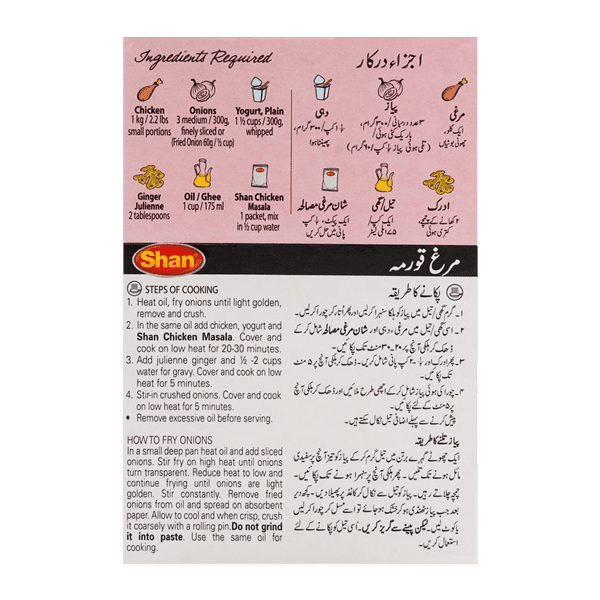 Ingredients Required
اجزاء درکار
Chicken
1 kg / 2.2 lbs
small portions
Onions
3 medium / 300g,
finely sliced or
(Fried Onion 60g / ½ cup)
Yogurt, Plain
1 ½ cups / 300g,
whipped
دہی
۱½ کپ / ۳۰۰ گرام،
پھینٹا ہوا
پیاز
۳ عدد درمیانی / ۳۰۰ گرام،
باریک کٹی ہوئی
(تلی ہوئی پیاز ½ کپ / ۶۰ گرام)
مرغی
ایک کلو،
چھوٹی بوٹیاں
Ginger
Julienne
2 tablespoons
Oil / Ghee
1 cup / 175 ml
Shan Chicken
Masala
1 packet, mix
in ½ cup water
شان مرغی مصالحہ
ایک پیکٹ، ½ کپ
پانی میں حل کریں
تیل / گھی
ایک کپ /
۱۷۵ ملی لیٹر
ادرک
۲ کھانے کے چمچے،
کتری ہوئی
Shan
مرغ قورمہ
STEPS OF COOKING
1. Heat oil, fry onions until light golden,
remove and crush.
2. In the same oil add chicken, yogurt and
Shan Chicken Masala. Cover and
cook on low heat for 20-30 minutes.
3. Add julienne ginger and ½ -2 cups
water for gravy. Cover and cook on low
heat for 5 minutes.
4. Stir-in crushed onions. Cover and cook
on low heat for 5 minutes.
• Remove excessive oil before serving.
HOW TO FRY ONIONS
In a small deep pan heat oil and add sliced
onions. Stir fry on high heat until onions
turn transparent. Reduce heat to low and
continue frying until onions are light
golden. Stir constantly. Remove fried
onions from oil and spread on absorbent
paper. Allow to cool and when crisp, crush
it coarsely with a rolling pin. Do not grind
it into paste. Use the same oil for
cooking.
پکانے کا طریقہ
۱۔ گرم گھی / تیل میں پیاز کو ہلکا سنہرا کر لیں اور پھر اُتار کر چورا کر لیں۔
۲۔ اسی گھی / تیل میں مرغی، دہی اور شان مرغی مصالحہ شامل کر کے
ڈھک کر ہلکی آنچ پر ۲۰-۳۰ منٹ تک پکائیں۔
۳۔ پھر ادرک اور ½-۲ کپ پانی شامل کریں۔ ڈھک کر ہلکی آنچ پر ۵ منٹ
تک پکائیں۔
۴۔ چورا کی ہوئی پیاز شامل کر کے اچھی طرح ملائیں اور ڈھک کر ہلکی آنچ
پر ۵ منٹ کے لئے پکائیں۔
پیش کرنے سے پہلے اضافی تیل نکال سکتے ہیں۔
پیاز تلنے کا طریقہ
ایک چھوٹے گہرے برتن میں تیل گرم کر کے پیاز کو تیز آنچ پر سفیدی
مائل ہونے تک تلیں۔ پھر ہلکی آنچ پر سنہرا ہونے تک پکائیں۔ اس دوران
چمچہ چلاتے رہیں۔ پیاز کو تیل سے نکال کر کاغذ پر پھیلا دیں۔ کچھ دیر
بعد جب پیاز ٹھنڈی ہو کر خشک ہو جائے تو اسے مسل کر چورا کر لیں
یا کوٹ لیں۔ لیکن پیسنے سے گریز کریں۔ اسی تیل کو پکانے کے لئے
استعمال کریں۔